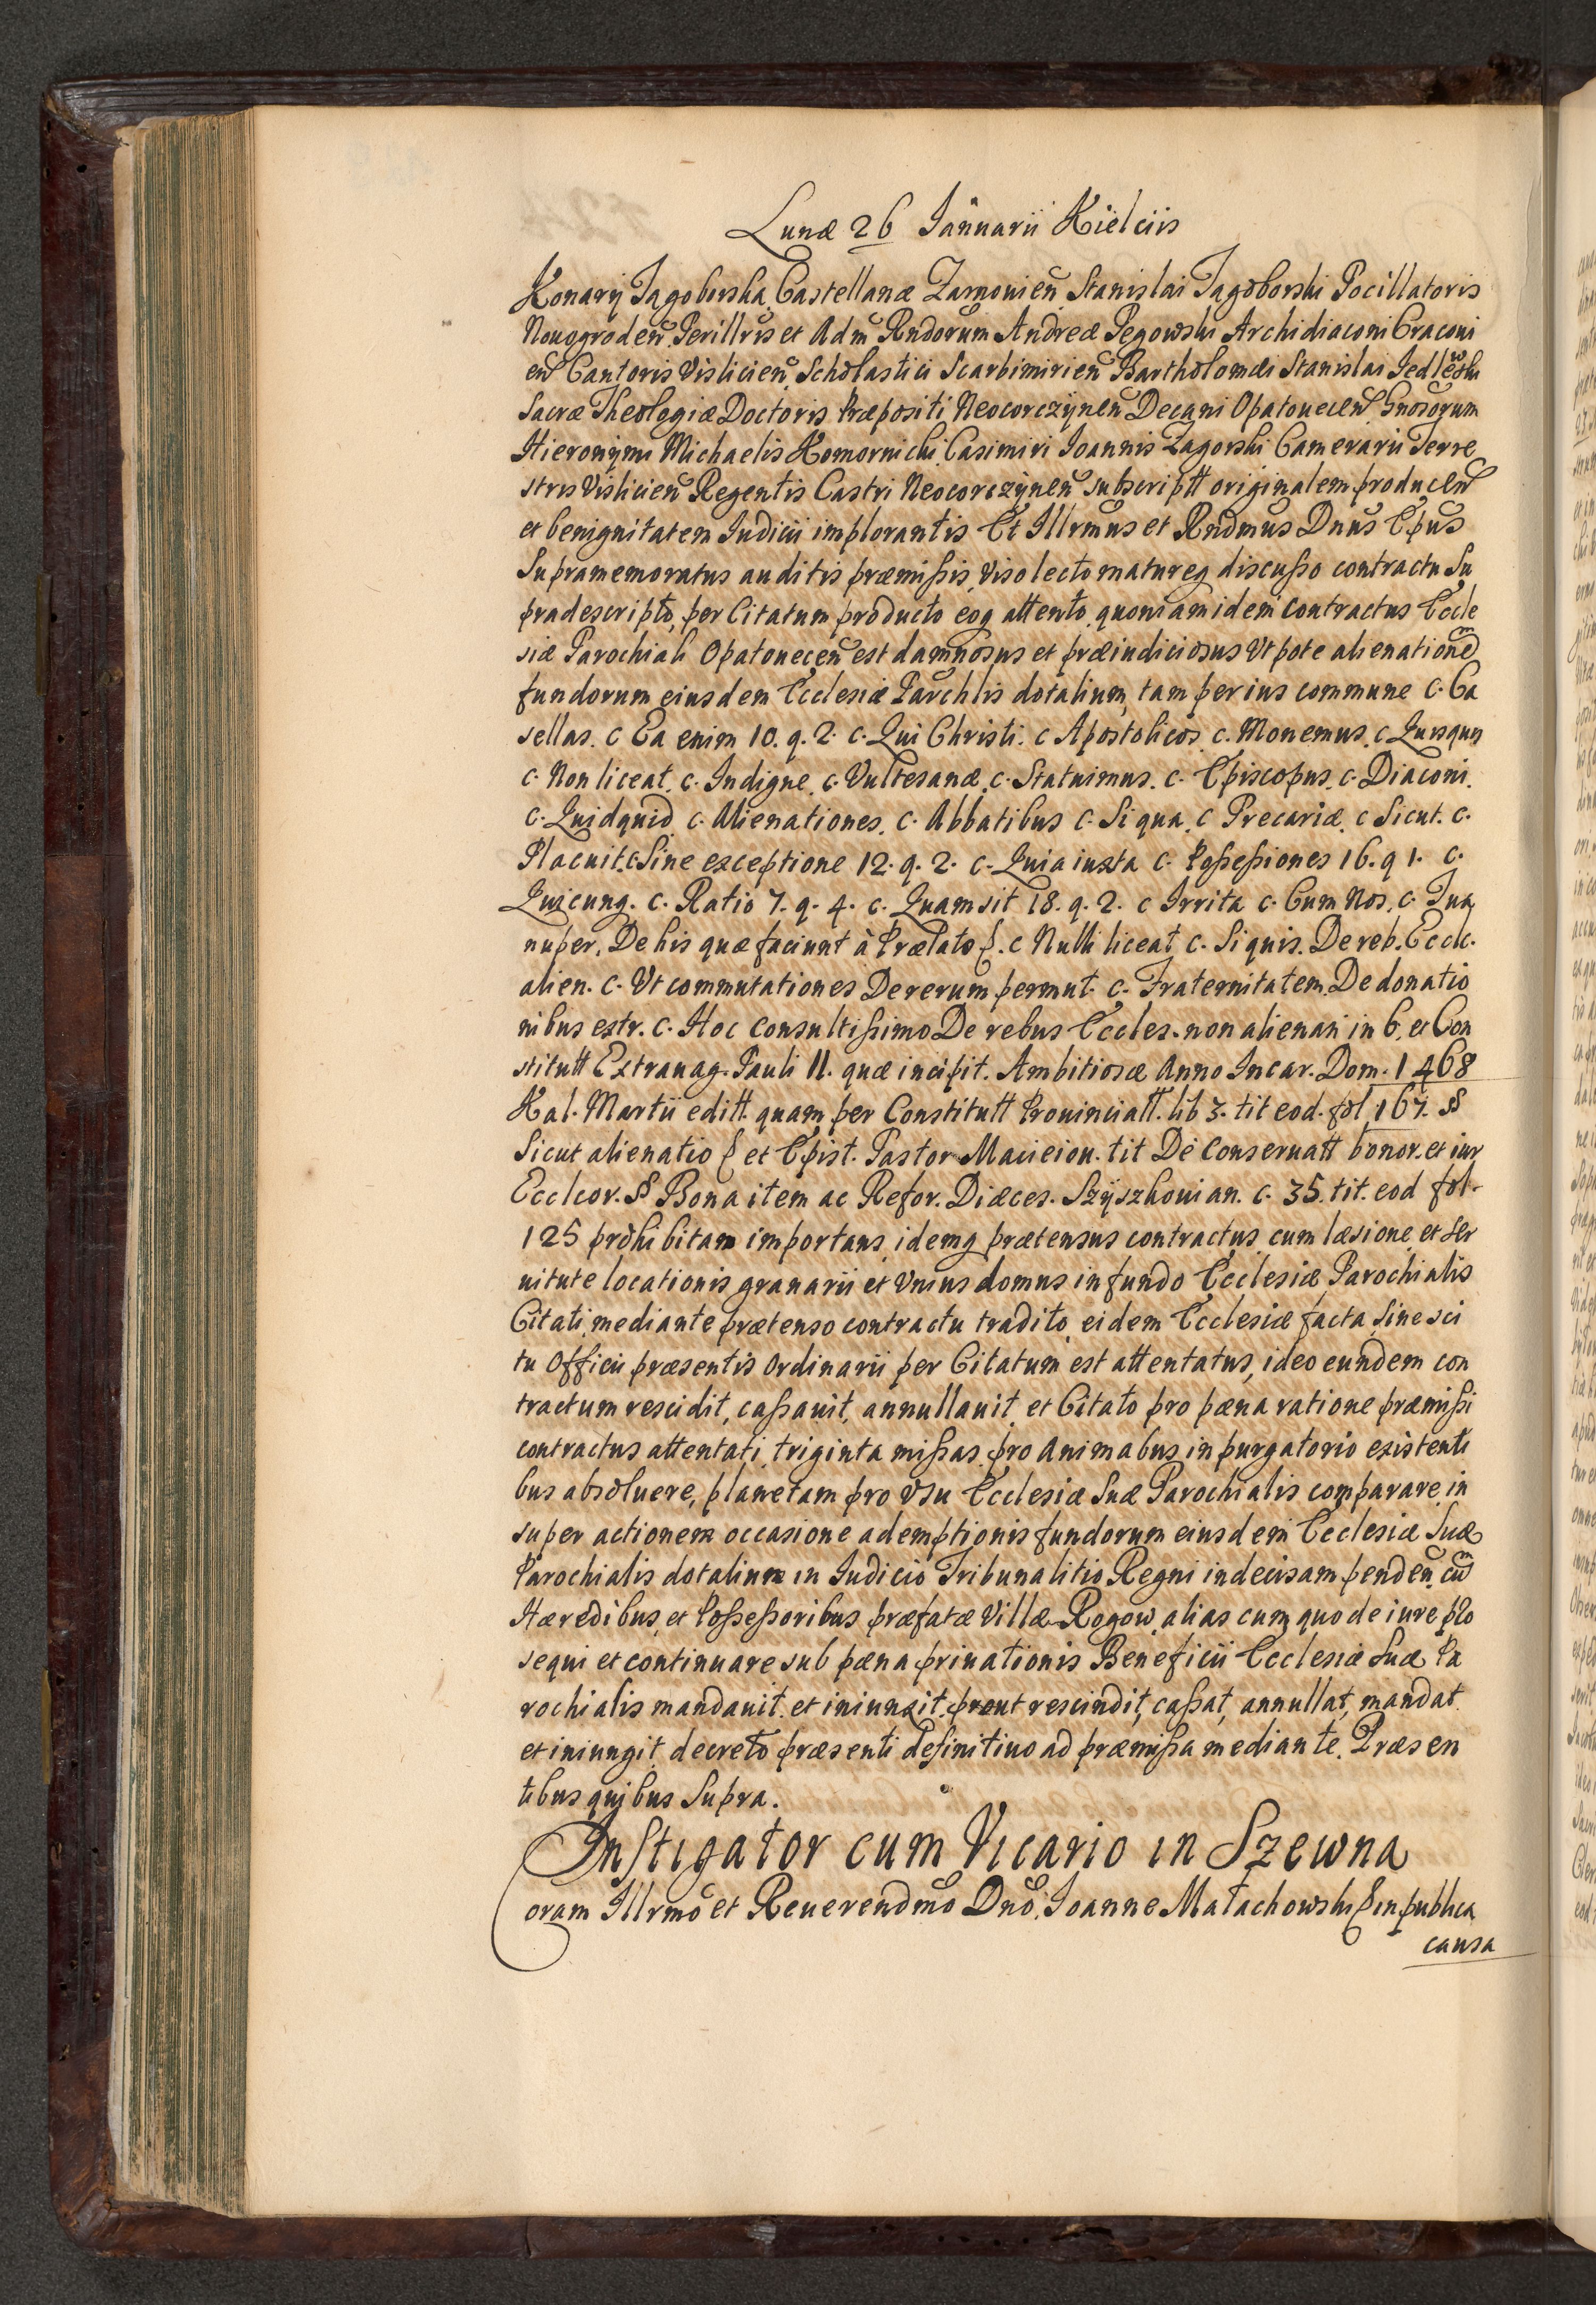 Lunæ 26 Januarii Kielciis
Konary Jagoborska Castellanæ Zarnouien̄ Stanislai Jagoborski Pocillatoris
Nouogroden̄ Perillr̄is et Adm̄ Rn̄dorum Andreæ Pegowski Archidiaconi Cracoui
en̄ Cantoris Vislicien̄ Scholastici Scarbimirien̄ Bartholomæi Stanislai Jedlewski
Sacræ Theologiæ Doctoris Præpositi Neocorczynen̄ Decani Opatouecen̄ Gn̄osorum
Hieronymi Michaelis Komornicki Casimiri Joannis Zagorski Camerarii Terre
stris Vislicien̄ Regentis Castri Neocorczynen̄ subscriptt originalem producen̄
et benignitatem Judicii implorantis Et Illrm̄us et Rn̄dmus Dn̄us Ep̄us
Supramemoratus auditis præmissis, viso lecto matureq discusso contractu Su
pradescripto, per Citatum producto eoq attento quoniam idem contractus Eccle
siæ Parochiali Opatouecen̄ est damnosus et præiudiciosus Vt pote alienationem
fundorum eiusdem Ecclesiæ Par̄chlis dotalium, tam per ius commune C. Ca
sellas. c Ea enim 10. q. 2. c. Qui Christi. c Apostolicos c. Monemus. c Quisquis
c. Non liceat. c. Indigne. c. Vultesanæ. c. Statuimus. c. Episcopus. c. Diaconi.
c. Quidquid c. Alienationes. c. Abbatibus c. Si qua. c Precariæ. c Sicut. c.
Placuit. c. Sine exceptione 12. q. 2. c. Quia iuxta c. Possessiones 16. q 1. c.
Quicunq. c. Ratio 7. q. 4. c. Quam sit 18. q. 2. c Irrita c. Cum Nos. c. Tua
nuper. De his quæ faciunt à Prælato &. c Nulli liceat c. Si quis. De reb. Eccle.
alien. c. Vt commutationes De rerum permut. c. Fraternitatem. De donatio
nibus extr. c. Hoc consultissimo De rebus Eccles. non alienan in 6. et Con
stitutt Extrauag. Pauli II. quæ incipit. Ambitiosæ Anno Incar. Dom. 1468
Kal. Martii editt. quam per Constitutt Prouinciatt. lib 3. tit eod. fol 167. §
Sicut alienatio & et Epist. Pastor. Macieiou. tit De Conseruatt bonor. et iur
Eccleor. § Bona item ac Refor. Diæces. Szyszkouian. c. 35. tit. eod fol.
125 prohibitam importans, idemq prætensus contractus cum læsione et ser
uitute locationis granarii et Vnius domus in fundo Ecclesiæ Parochialis
Citati mediante prætenso contractu tradito eidem Ecclesiæ facta, sine sci
tu Officii præsentis Ordinarii per Citatum est attentatus, ideo eundem con
tractum rescidit, cassauit, annullauit et Citato pro pæna ratione præmissi
contractus attentati, triginta missas pro Animabus in purgatorio existenti
bus absoluere, planetam pro vsu Ecclesiæ Suæ Parochialis comparare, in
super actionem occasione ademptionis fundorum eiusdem Ecclesiæ Suæ
Parochialis dotalium in Judicio Tribunalitio Regni indecisam penden̄. cum
Hæredibus, et Possessoribus præfatæ Villæ Rogow, alias cum quo de iure pro
sequi et continuare sub pæna priuationis Beneficii Ecclesiæ Suæ Pa
rochialis mandauit. et iniunxit. prout rescindit, cassat, annullat, mandat
et iniungit decreto præsenti definitiuo ad præmissa mediante. Præsen
tibus quibus Supra.
Instigator cum Vicario in Szewna
Coram Illrmo et Reuerendmo Dno. Joanne Małachowski & in publica
causa